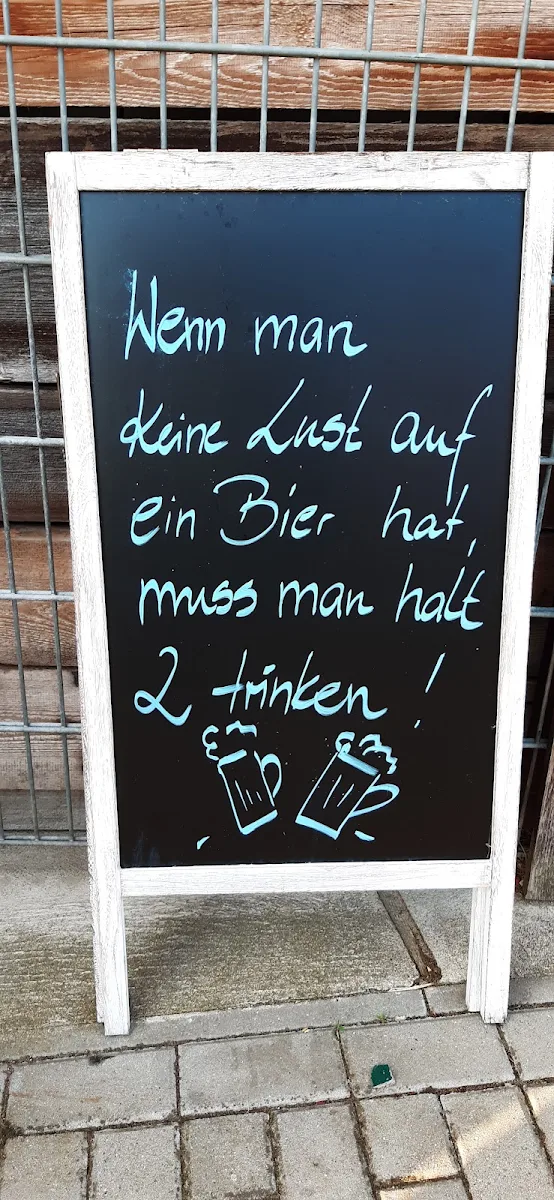 Wenn man
keine Lust auf
ein Bier hat,
muss man halt
2 trinken !